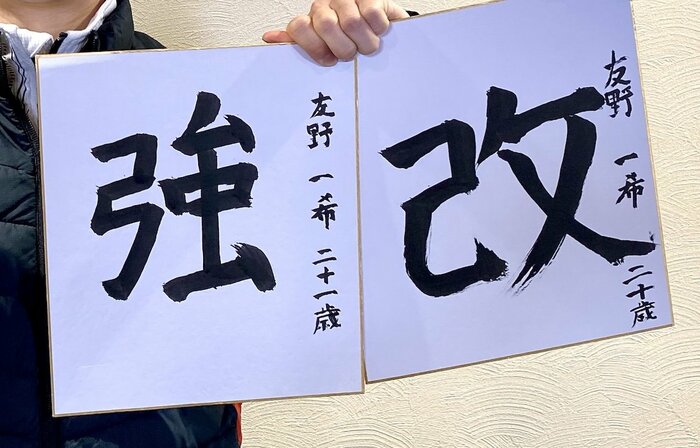 改
友野 一希 二十歳
強
友野 一希 二十一歳